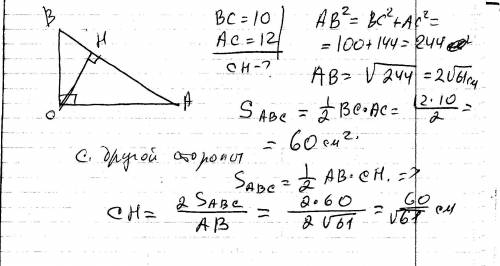 B
H
C
A
BC = 10
AC = 12
CH - ?
AB² = BC² + AC² =
= 100 + 144 = 244
AB = √244 = 2√61 см
S_ABC = 1/2 BC · AC = 12·10/2 =
= 60 см².
С другой стороны
S_ABC = 1/2 AB · CH. =>
CH = 2 S_ABC / AB = 2·60 / 2√61 = 60/√61 см